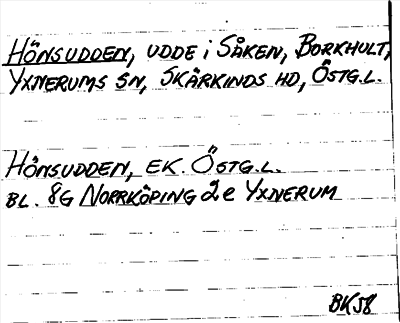 HÖNSUDDEN, UDDE i SÅKEN, BORKHULT,
YXNERUMS SN, SKÄRKINDS HD, ÖSTG.L.
HÖNSUDDEN, EK. ÖSTG.L.
BL. 8G NORRKÖPING 2e YXNERUM
BK58